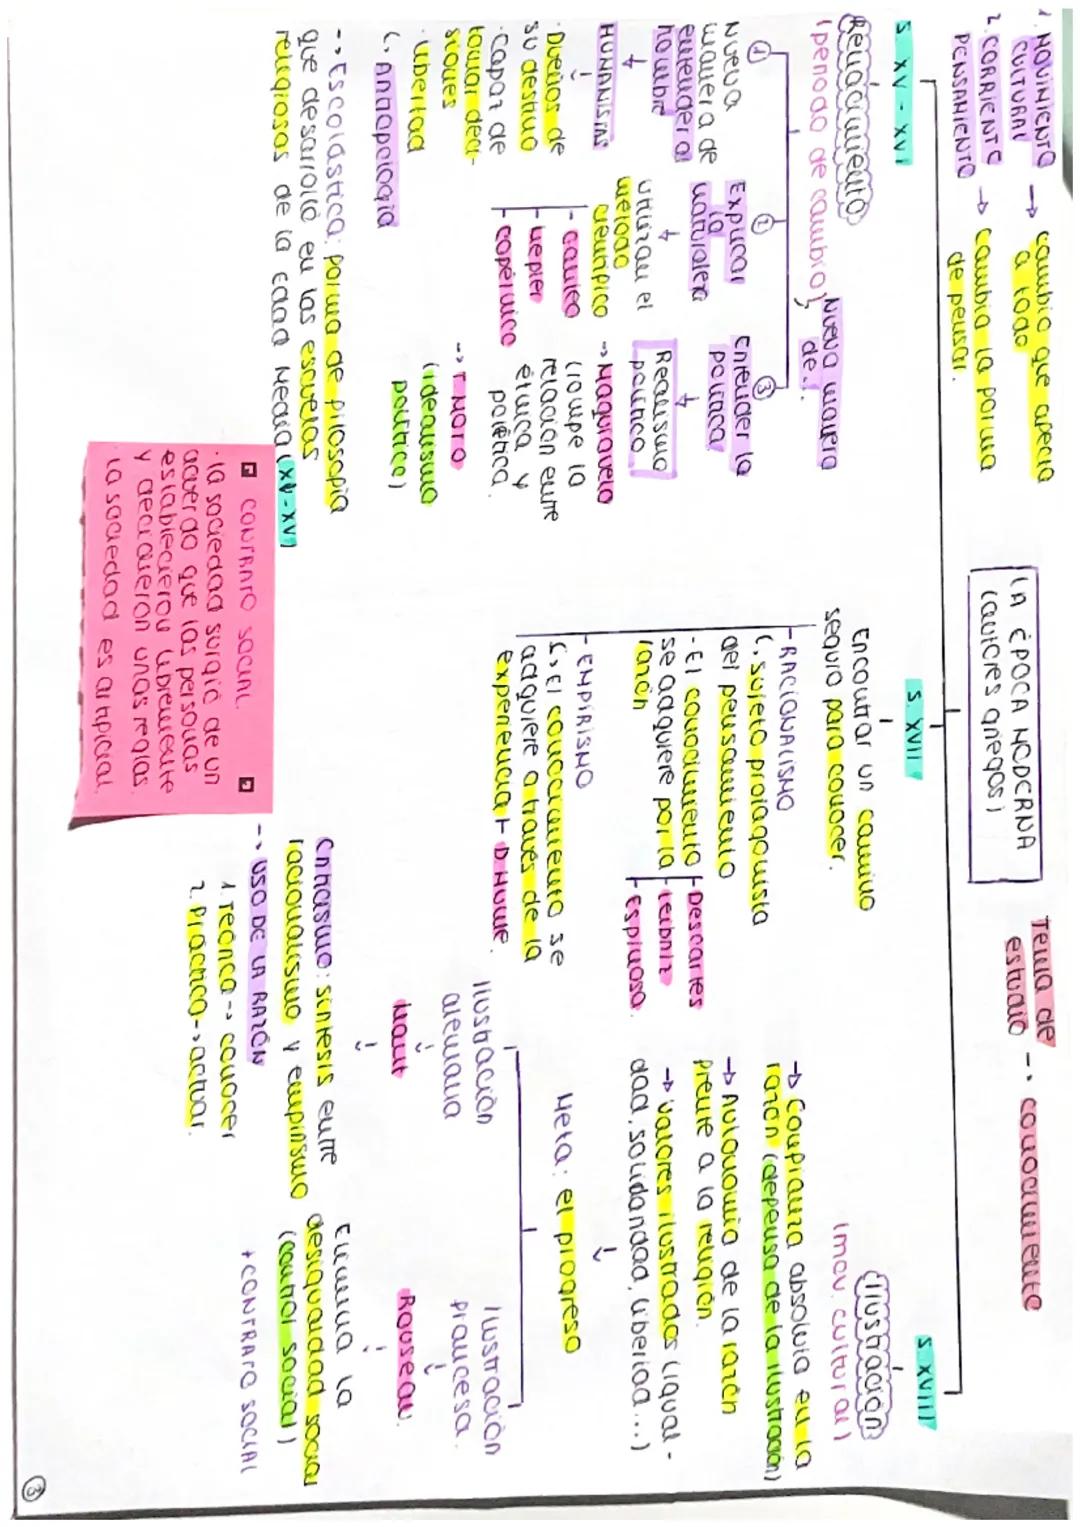 1. MOVIMIENTO CULTURAL → cambio que afecta a todo
2. CORRIENTE PENSAMIENTO → cambia la forma de pensar.
LA ÉPOCA MODERNA
Tema de estudio → conocimiento
S. XV - XVI
Renacimiento
(periodo de cambio)
Nueva manera de...
①
Nueva manera de entender al hombre
↓
HUMANISTAS
↓
· Dueños de su destino
· Capaz de tomar deci-
siones
· libertad
↳ Antropología
②
Explicar la naturaleza
↓
utilizan el método científico
- Galileo
- Kepler
- Copérnico
③
Entender la política
↓
Realismo político
→ Maquiavelo
(rompe la relación entre ética y política.
→ T. Moro
(idealismo político)
-> Escolástica: forma de filosofía
que desarrolló en las escuelas
religiosas de la edad Media (XV-XVI)
S. XVII
Encontrar un camino
seguro para conocer.
- RACIONALISMO
↳ sujeto protagonista
del pensamiento
- El conocimiento
se adquiere por la
razón
- Descartes
- Leibniz
- Espinosa.
- EMPIRISMO
↳ El conocimiento se
adquiere a través de la
experiencia + D. Hume.
S. XVIII
Ilustración
(mov. cultural)
→ Confianza absoluta en la
razón (defensa de la ilustración)
→ Autonomía de la razón
frente a la religión.
→ Valores ilustrados (igual-
dad, solidaridad, libertad...)
↓
Meta: el progreso
Ilustración alemana
↓
Kant
↓
Criticismo: síntesis entre
racionalismo y empirismo
-> USO DE LA RAZÓN
1. Teórica -> conocer
2. Práctica -> actuar.
Ilustración francesa.
↓
Rouseau.
↓
Elimina la
desigualdad social
(control social)
+ CONTRATO SOCIAL
CONTRATO SOCIAL.
· la sociedad surgió de un
acuerdo que las personas
establecieron libremente
y decidieron unas reglas
la sociedad es artificial.
3